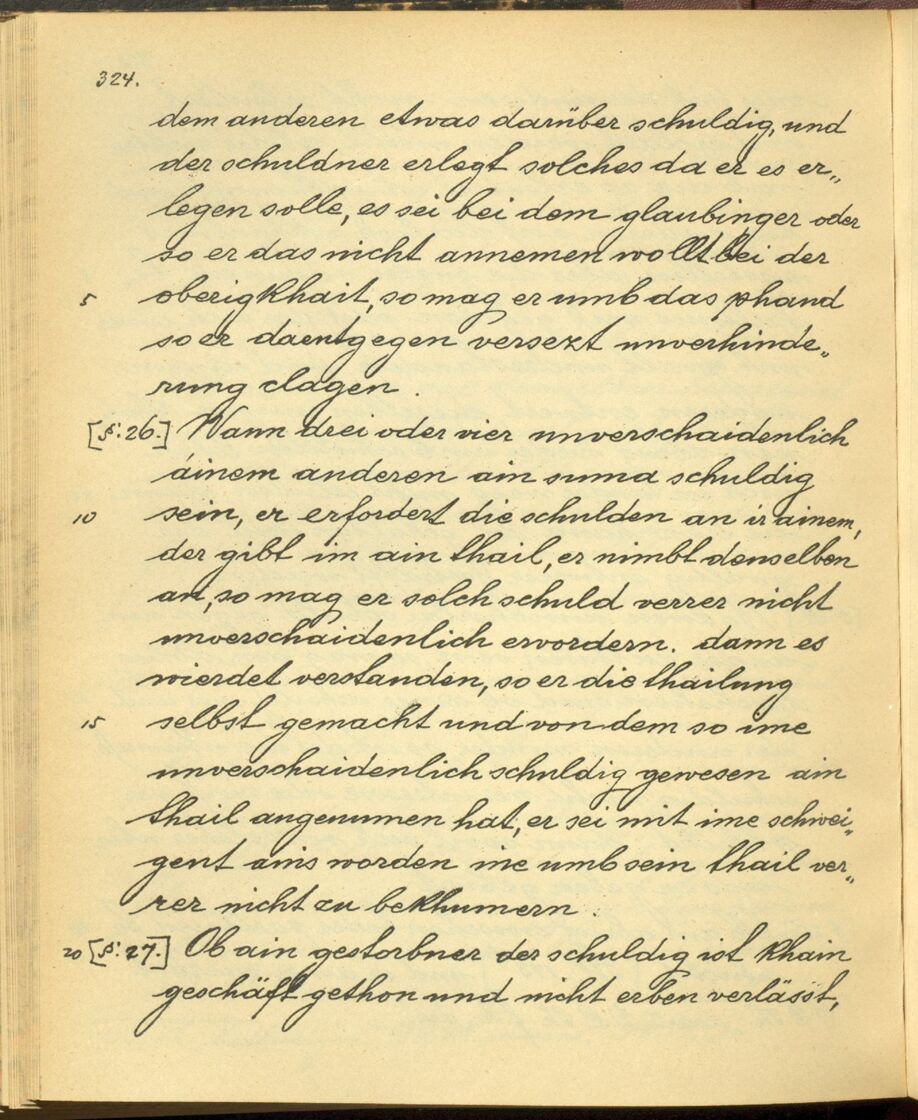 324.
dem anderen etwas darüber schuldig, und
der schuldner erlegt solches da er es er„
legen solle, es sei bei dem glaubinger oder
so er das nicht annemen wollt bei der
5 oberigkhait, so mag er umb das phand
so er daentgegen versezt unverhinde„
rung clagen.
[§: 26.] Wann drei oder vier unverschaidenlich
áinem anderen ain suma schuldig
10 sein, er erfordert die schulden an ir ainem,
der gibt im ain thail, er nimbt denselben
an, so mag er solch schuld verrer nicht
unverschaidenlich ervordern. dann es
wierdet verstanden, so er die thailung
15 selbst gemacht und von dem so ime
unverschaidenlich schuldig gewesen ain
thail angenumen hat, er sei mit ime schwei„
gent ains worden ine umb sein thail ver„
rer nicht zu bekhumern.
20 [§: 27.] Ob ain gestorbner der schuldig ist khain
geschäft gethon und nicht erben verlässt,